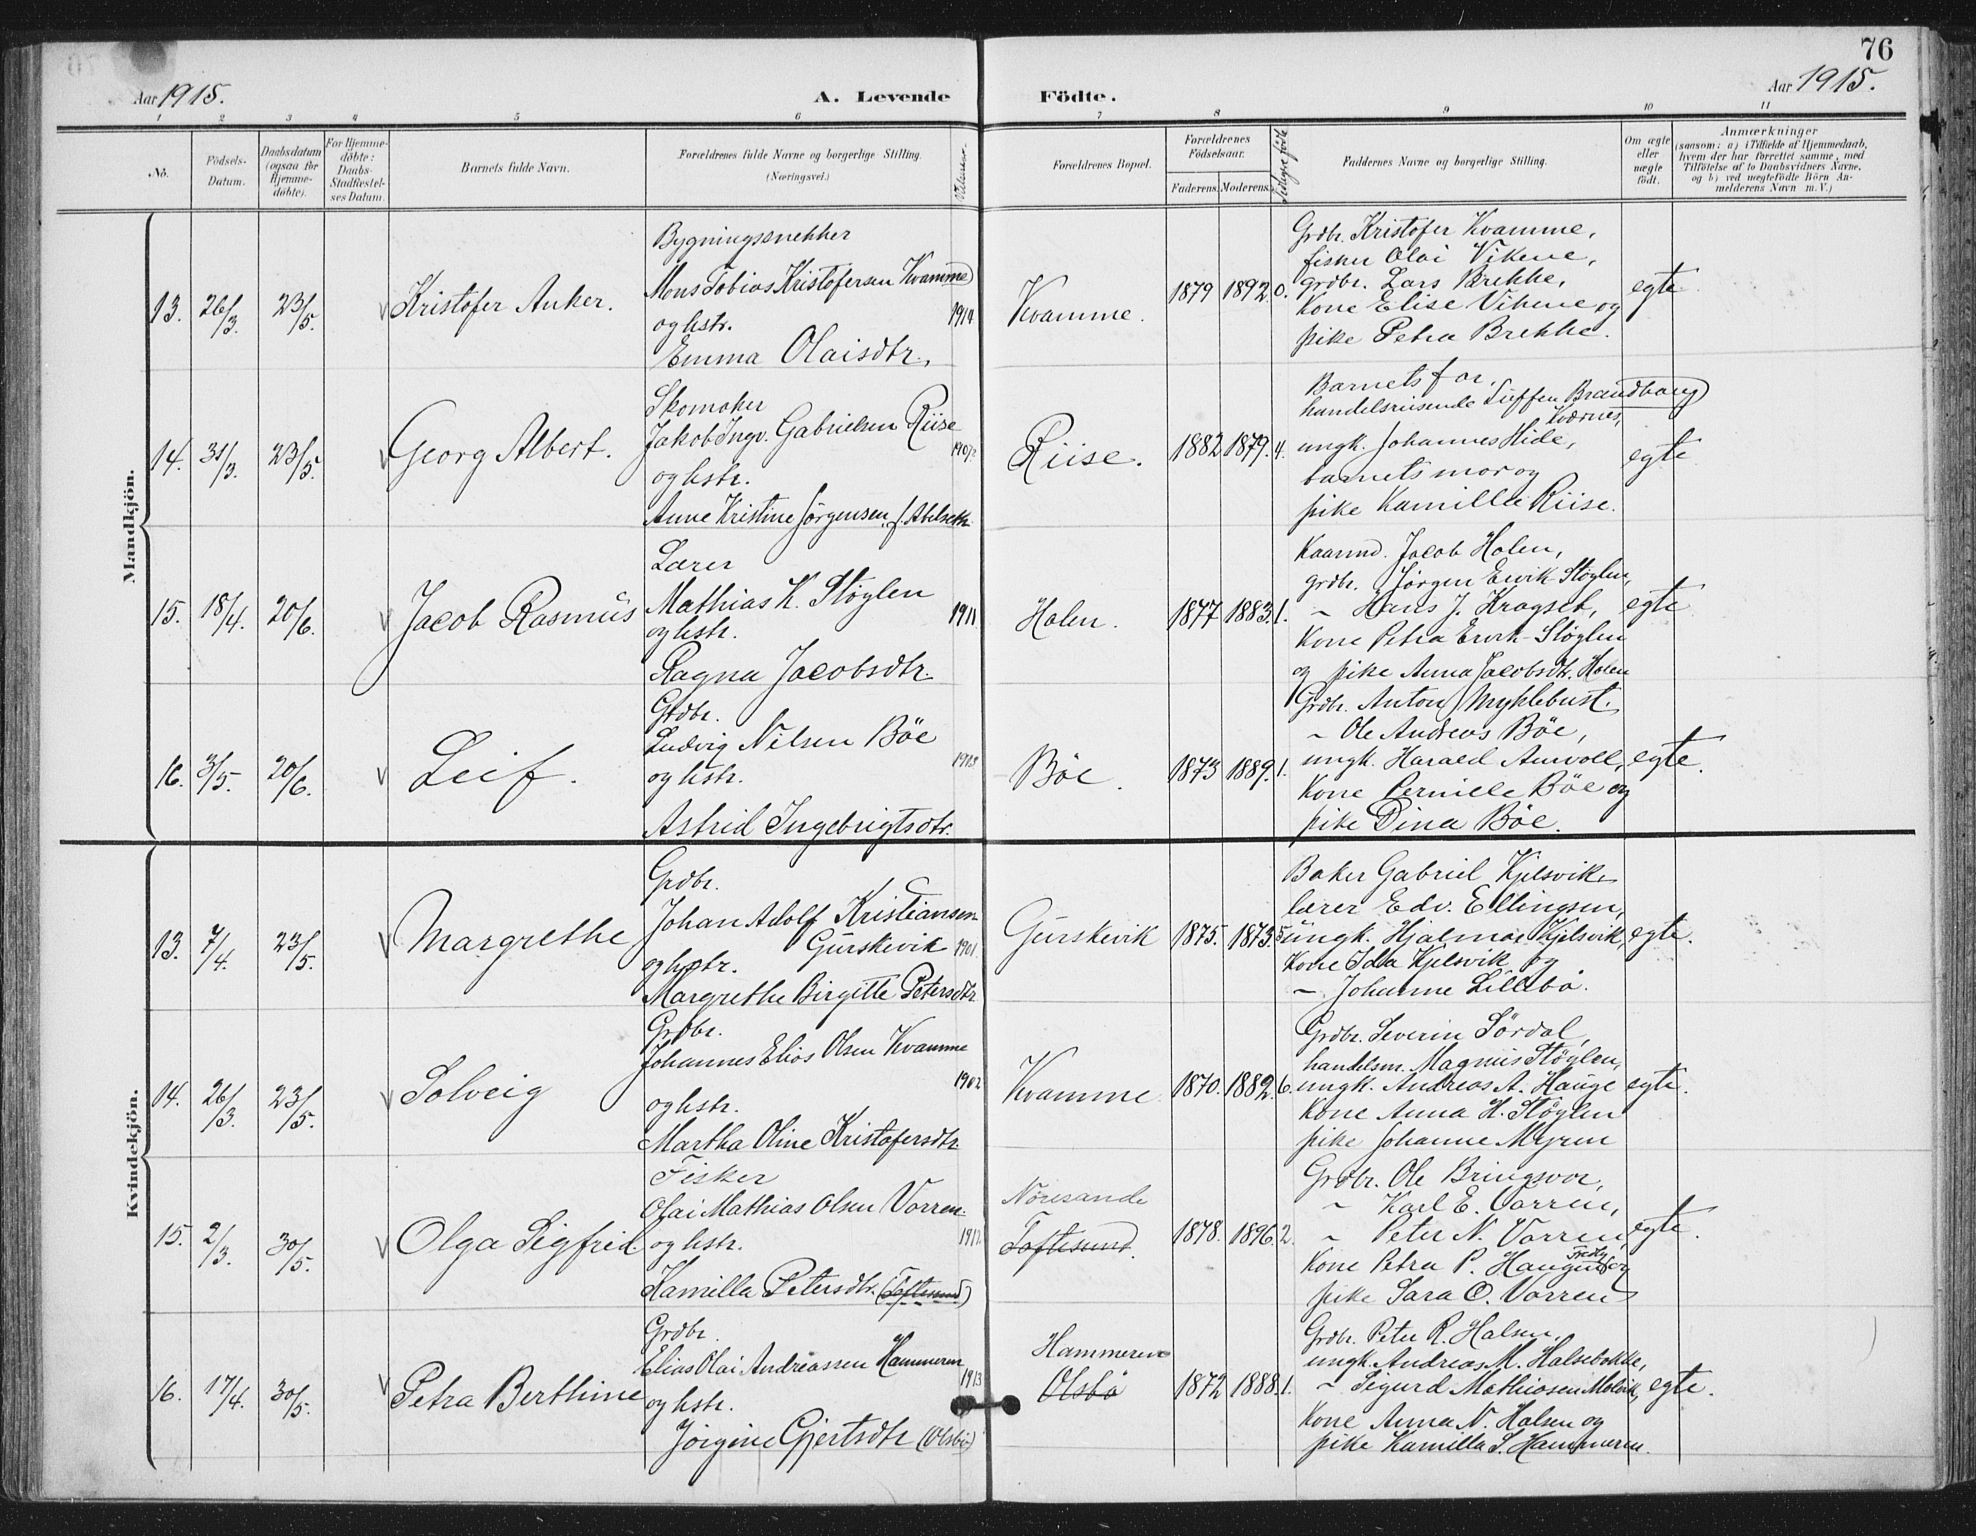 76
Aar 1915.
A. Levende
Födte.
Aar 1915.
1 2 3 4 5 6 7 8 9 10 11
No.
Födsels-Datum.
Daabsdatum (ogsaa for Hjemme-döbte).
For Hjemme-döbte: Daabs-Stadfæstel-ses Datum.
Barnets fulde Navn.
Forældrenes fulde Navne og borgerlige Stilling.
(Næringsvei.)
Forældrenes Bopæl.
Forældrenes Födselsaar.
Faderens. Moderens.
Faddernes Navne og borgerlige Stilling.
Om ægte eller uægte födt.
Anmærkninger
(saasom: a) i Tilfælde af Hjemmedaab,
hvem der har forrettet samme, med
Tilföielse af to Daabsvidners Navne,
og b) ved uægtefödte Börn An-
melderens Navn m. V.)
Mandkjön.
Bygningssnekker
Mons Tobias Kristofersen Kvamme
13. 26/3. 23/5. Kristofer Anker.
og hstr. 1914
Emma Olaisdtr.
Kvamme. 1879 1892. 0.
Grdbr. Kristofer Kvamme,
fisker Olai Vikene,
grdbr. Lars Brekke,
Kone Elise Vikene og
pike Petra Brekke.
egte
Skomaker
Jakob Ingv. Gabrielsen Riise
14. 31/3. 23/5. Georg Albert.
og hstr.
Anne Kristine Jörgensen, f. Abelseth
Riise. 1882 1879. 4.
Barnets far,
handelsreisende Steffen Brandhaug
Kværnes,
ungk. Johannes Hide,
barnets mor og
pike Kamilla Riise.
egte
Lærer
Mathias K. Støylen
15. 18/4. 20/6. Jacob Rasmus
og hstr. 1911
Ragna Jacobsdtr.
Holen. 1877 1883. 1.
Kaarmd. Jacob Holen,
grdbr. Jørgen Ervik Støylen,
~ Hans J. Kragset,
Kone Petra Ervik Støylen
og pike Anna Jacobsdtr. Holen
egte
Grdbr.
Ludvig Nilsen Böe
16. 3/5. 20/6. Leif.
og hstr. 1913
Astrid Ingebrigtsdtr.
Böe. 1873 1889. 1.
Grdbr. Anton Myklebust.
~ Ole Andreas Böe,
ungk. Harald Aurvoll,
Kone Pernille Böe og
pike Dina Böe.
egte.
Kvindekjön.
Grdbr.
Johan Adolf Kristiansen
Gurskevik 1901
13. 7/4. 23/5. Margrethe
og hstr.
Margrethe Birgitte Petersdtr
Gurskevik 1875. 1873. 5
Baker Gabriel Kjelsvik
lærer Edv. Ellingsen,
ungk. Hjalmar Kjelsvik,
Kone Ida Kjelsvik og
~ Johanne Lillebö.
egte.
Grdbr.
Johannes Elias Olsen Kvamme
14. 26/3. 23/5. Solveig
1902
og hstr.
Martha Oline Kristofersdtr
Kvamme 1870. 1882. 6.
Grdbr. Severin Sördal,
handelsm. Magnus Støylen,
ungk. Andreas A. Hauge
Kone Anna H. Støylen
pike Johanne Myren
egte.
Fisker
Olai Mathias Olsen Vorren
15. 2/3. 30/5. Olga Sigfrid
og hstr. 1912
Kamilla Petersdtr. (Toftesund)
Nöresande
Toftesund. 1878. 1896. 2.
Grdbr. Ole Bringsvor,
~ Karl E. Vorren,
~ Peter N. Vorren,
Kone Petra P. Haugen og
pike Sara O. Vorren
egte
Grdbr.
Elias Olai Andreassen Hammeren
16. 17/4. 30/5. Petra Berthine
og hstr. 1913
Jörgine Gjertsdtr (Olsbö)
Hammeren
Olsbö 1872 1888. 1.
Grdbr. Peter R. Halsen,
ungk. Andreas M. Halsebakke,
~ Sigurd Mathiasen Molvik,
Kone Anna N. Halsen og
pike Kamilla S. Hammeren.
egte.